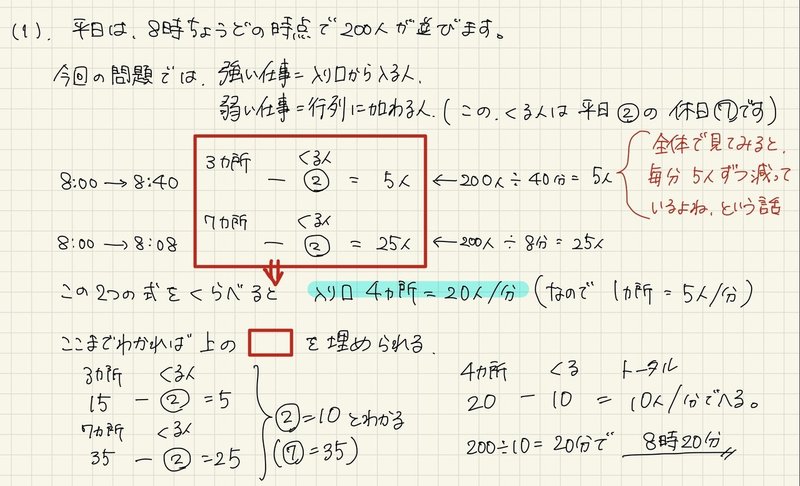 (1). 平日は、8時ちょうどの時点で200人が並びます。
今回の問題では、強い仕事=入り口から入る人、
弱い仕事=行列に加わる人。(この、くる人は平日②の休日⑦です)
3カ所 くる人
8:00→8:40 − ② = 5人 ←200人÷40分=5人
全体で見てみると、
毎分5人ずつ減って
いるよね、という話
7カ所 くる人
8:00→8:08 − ② = 25人 ←200人÷8分=25人
この2つの式をくらべると 入り口4カ所=20人/分 (なので 1カ所=5人/分)
ここまでわかれば上の を埋められる。
3カ所 くる人
15 − ② = 5
7カ所 くる人
35 − ② = 25
②=10とわかる
(⑦=35)
4カ所 くる トータル
20 − 10 = 10人/分でへる。
200÷10=20分で 8時20分